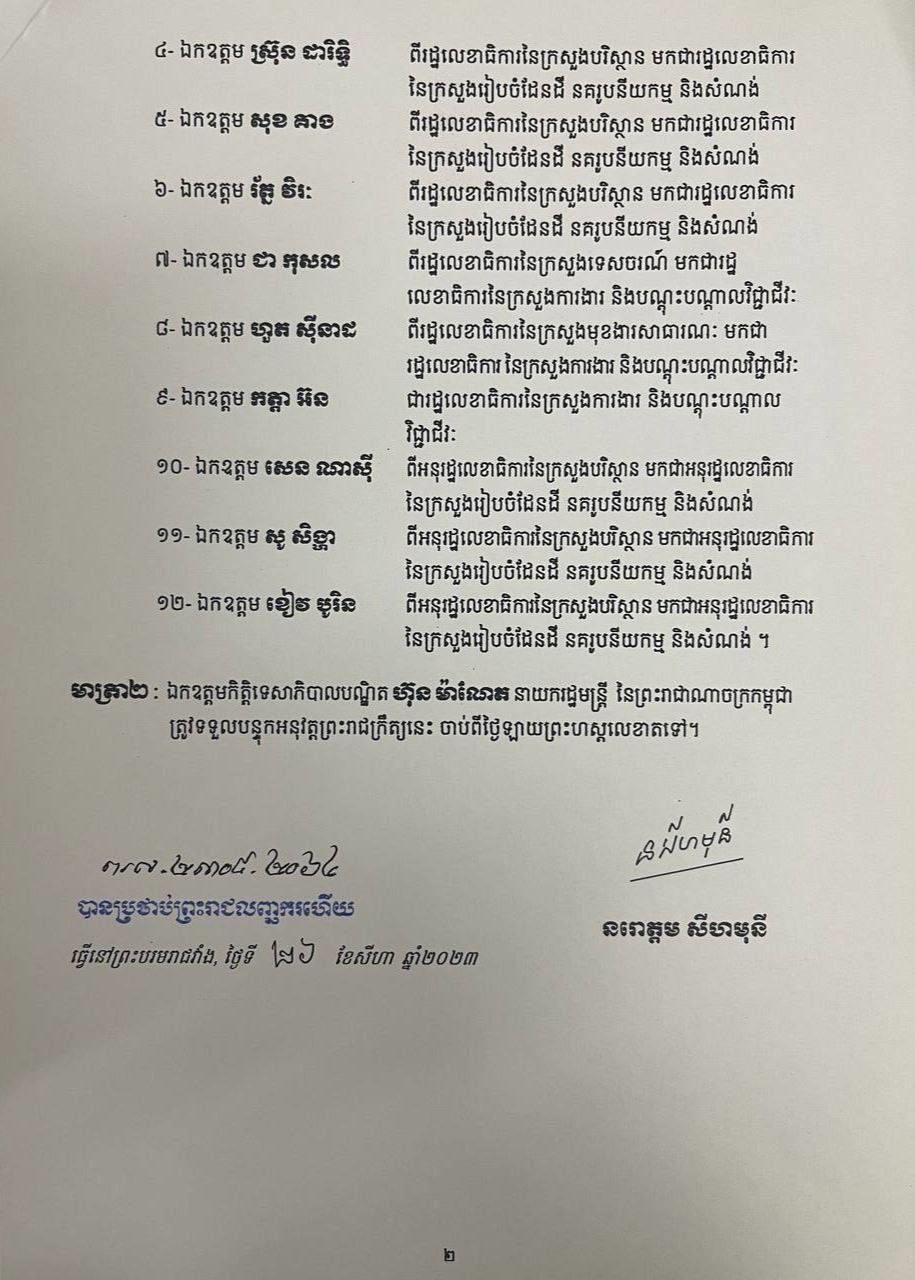 ៤- ឯកឧត្តម ស្រ៊ុន ដារិទ្ធិ ពីរដ្ឋលេខាធិការនៃក្រសួងបរិស្ថាន មកជារដ្ឋលេខាធិការ
នៃក្រសួងរៀបចំដែនដី នគរូបនីយកម្ម និងសំណង់
៥- ឯកឧត្តម សុខ គាង ពីរដ្ឋលេខាធិការនៃក្រសួងបរិស្ថាន មកជារដ្ឋលេខាធិការ
នៃក្រសួងរៀបចំដែនដី នគរូបនីយកម្ម និងសំណង់
៦- ឯកឧត្តម វិរៈ ពីរដ្ឋលេខាធិការនៃក្រសួងបរិស្ថាន មកជារដ្ឋលេខាធិការ
នៃក្រសួងរៀបចំដែនដី នគរូបនីយកម្ម និងសំណង់
៧- ឯកឧត្តម ជា កុសល ពីរដ្ឋលេខាធិការនៃក្រសួងទេសចរណ៍ មកជារដ្ឋ
លេខាធិការនៃក្រសួងការងារ និងបណ្តុះបណ្តាលវិជ្ជាជីវៈ
៨- ឯកឧត្តម ហួត ស៊ីនាដ ពីរដ្ឋលេខាធិការនៃក្រសួងមុខងារសាធារណៈ មកជា
រដ្ឋលេខាធិការ នៃក្រសួងការងារ និងបណ្តុះបណ្តាលវិជ្ជាជីវៈ
៩- ឯកឧត្តម កត្តា អ៊ន ជារដ្ឋលេខាធិការនៃក្រសួងការងារ និងបណ្តុះបណ្តាល
វិជ្ជាជីវៈ
១០- ឯកឧត្តម សេន ណាស៊ី ពីអនុរដ្ឋលេខាធិការនៃក្រសួងបរិស្ថាន មកជាអនុរដ្ឋលេខាធិការ
នៃក្រសួងរៀបចំដែនដី នគរូបនីយកម្ម និងសំណង់
១១- ឯកឧត្តម សូ សិង្ហា ពីអនុរដ្ឋលេខាធិការនៃក្រសួងបរិស្ថាន មកជាអនុរដ្ឋលេខាធិការ
នៃក្រសួងរៀបចំដែនដី នគរូបនីយកម្ម និងសំណង់
១២- ឯកឧត្តម ខៀវ បូរិន ពីអនុរដ្ឋលេខាធិការនៃក្រសួងបរិស្ថាន មកជាអនុរដ្ឋលេខាធិការ
នៃក្រសួងរៀបចំដែនដី នគរូបនីយកម្ម និងសំណង់ ។
មាត្រា២ : ឯកឧត្តមកិត្តិទេសាភិបាលបណ្ឌិត ហ៊ុន ម៉ាណែត នាយករដ្ឋមន្ត្រី នៃព្រះរាជាណាចក្រកម្ពុជា
ត្រូវទទួលបន្ទុកអនុវត្តព្រះរាជក្រឹត្យនេះ ចាប់ពីថ្ងៃឡាយព្រះហស្តលេខាតទៅ។
ន សីហមុនី
ព.រ.ល.២៣០៨.២០៦៤
បានប្រថាប់ព្រះរាជលញ្ឆករហើយ
នរោត្តម សីហមុនី
ធ្វើនៅព្រះបរមរាជវាំង, ថ្ងៃទី ២៦ ខែសីហា ឆ្នាំ២០២៣
២